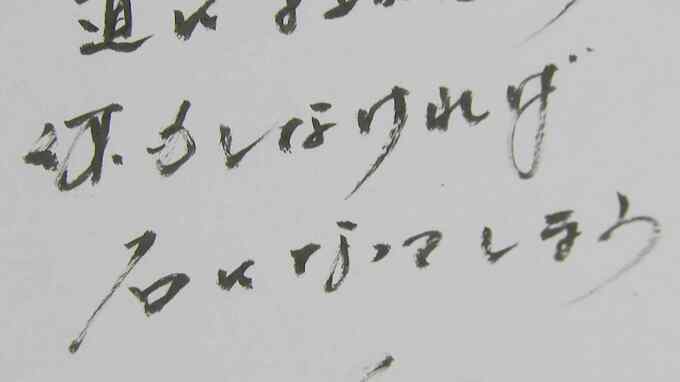 道に
何もしなければ
石になってしまう